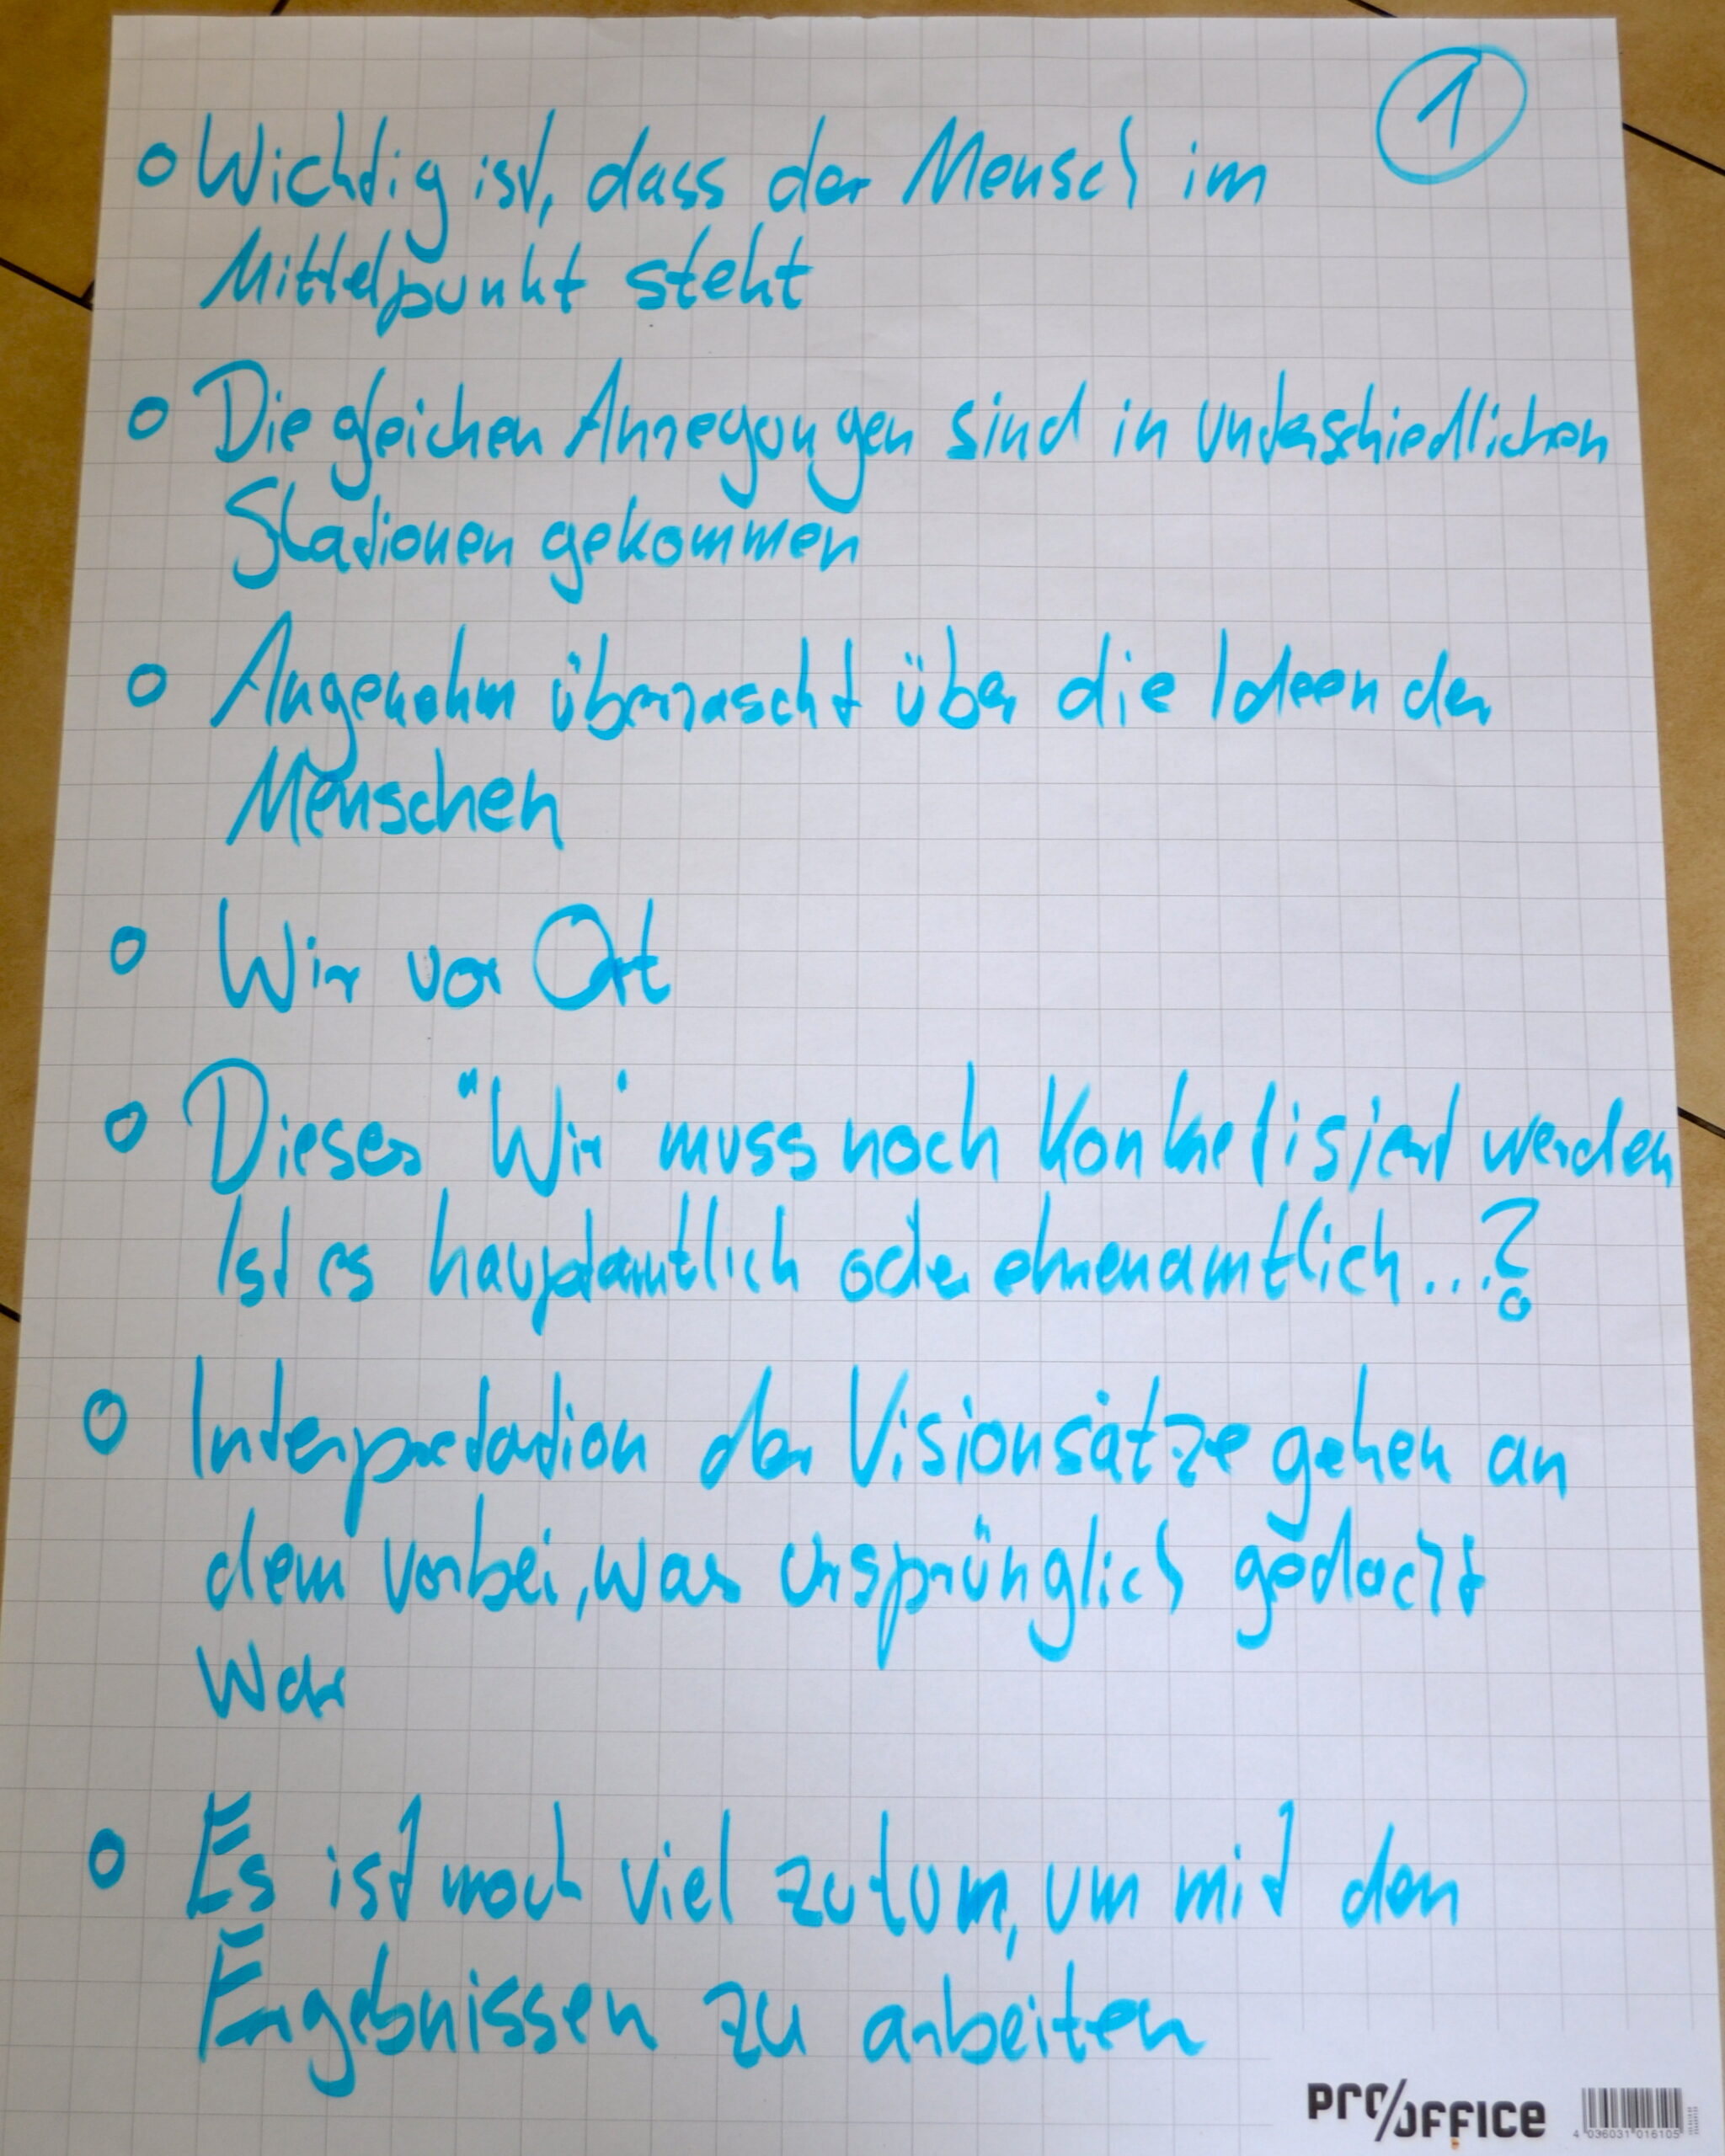 1
o Wichtig ist, dass der Mensch im
Mittelpunkt steht
o Die gleichen Anregungen sind in unterschiedlichen
Stationen gekommen
o Angenehm überrascht über die Ideen der
Menschen
o Wir vor Ort
o Dieses "Wir" muss noch konkretisiert werden
Ist es hauptamtlich oder ehrenamtlich...?
o Interpretation der Visionsätze gehen an
dem vorbei, was ursprünglich gedacht
war
o Es ist noch viel zu tun, um mit den
Ergebnissen zu arbeiten
PRO/OFFICE
4 036031 016105